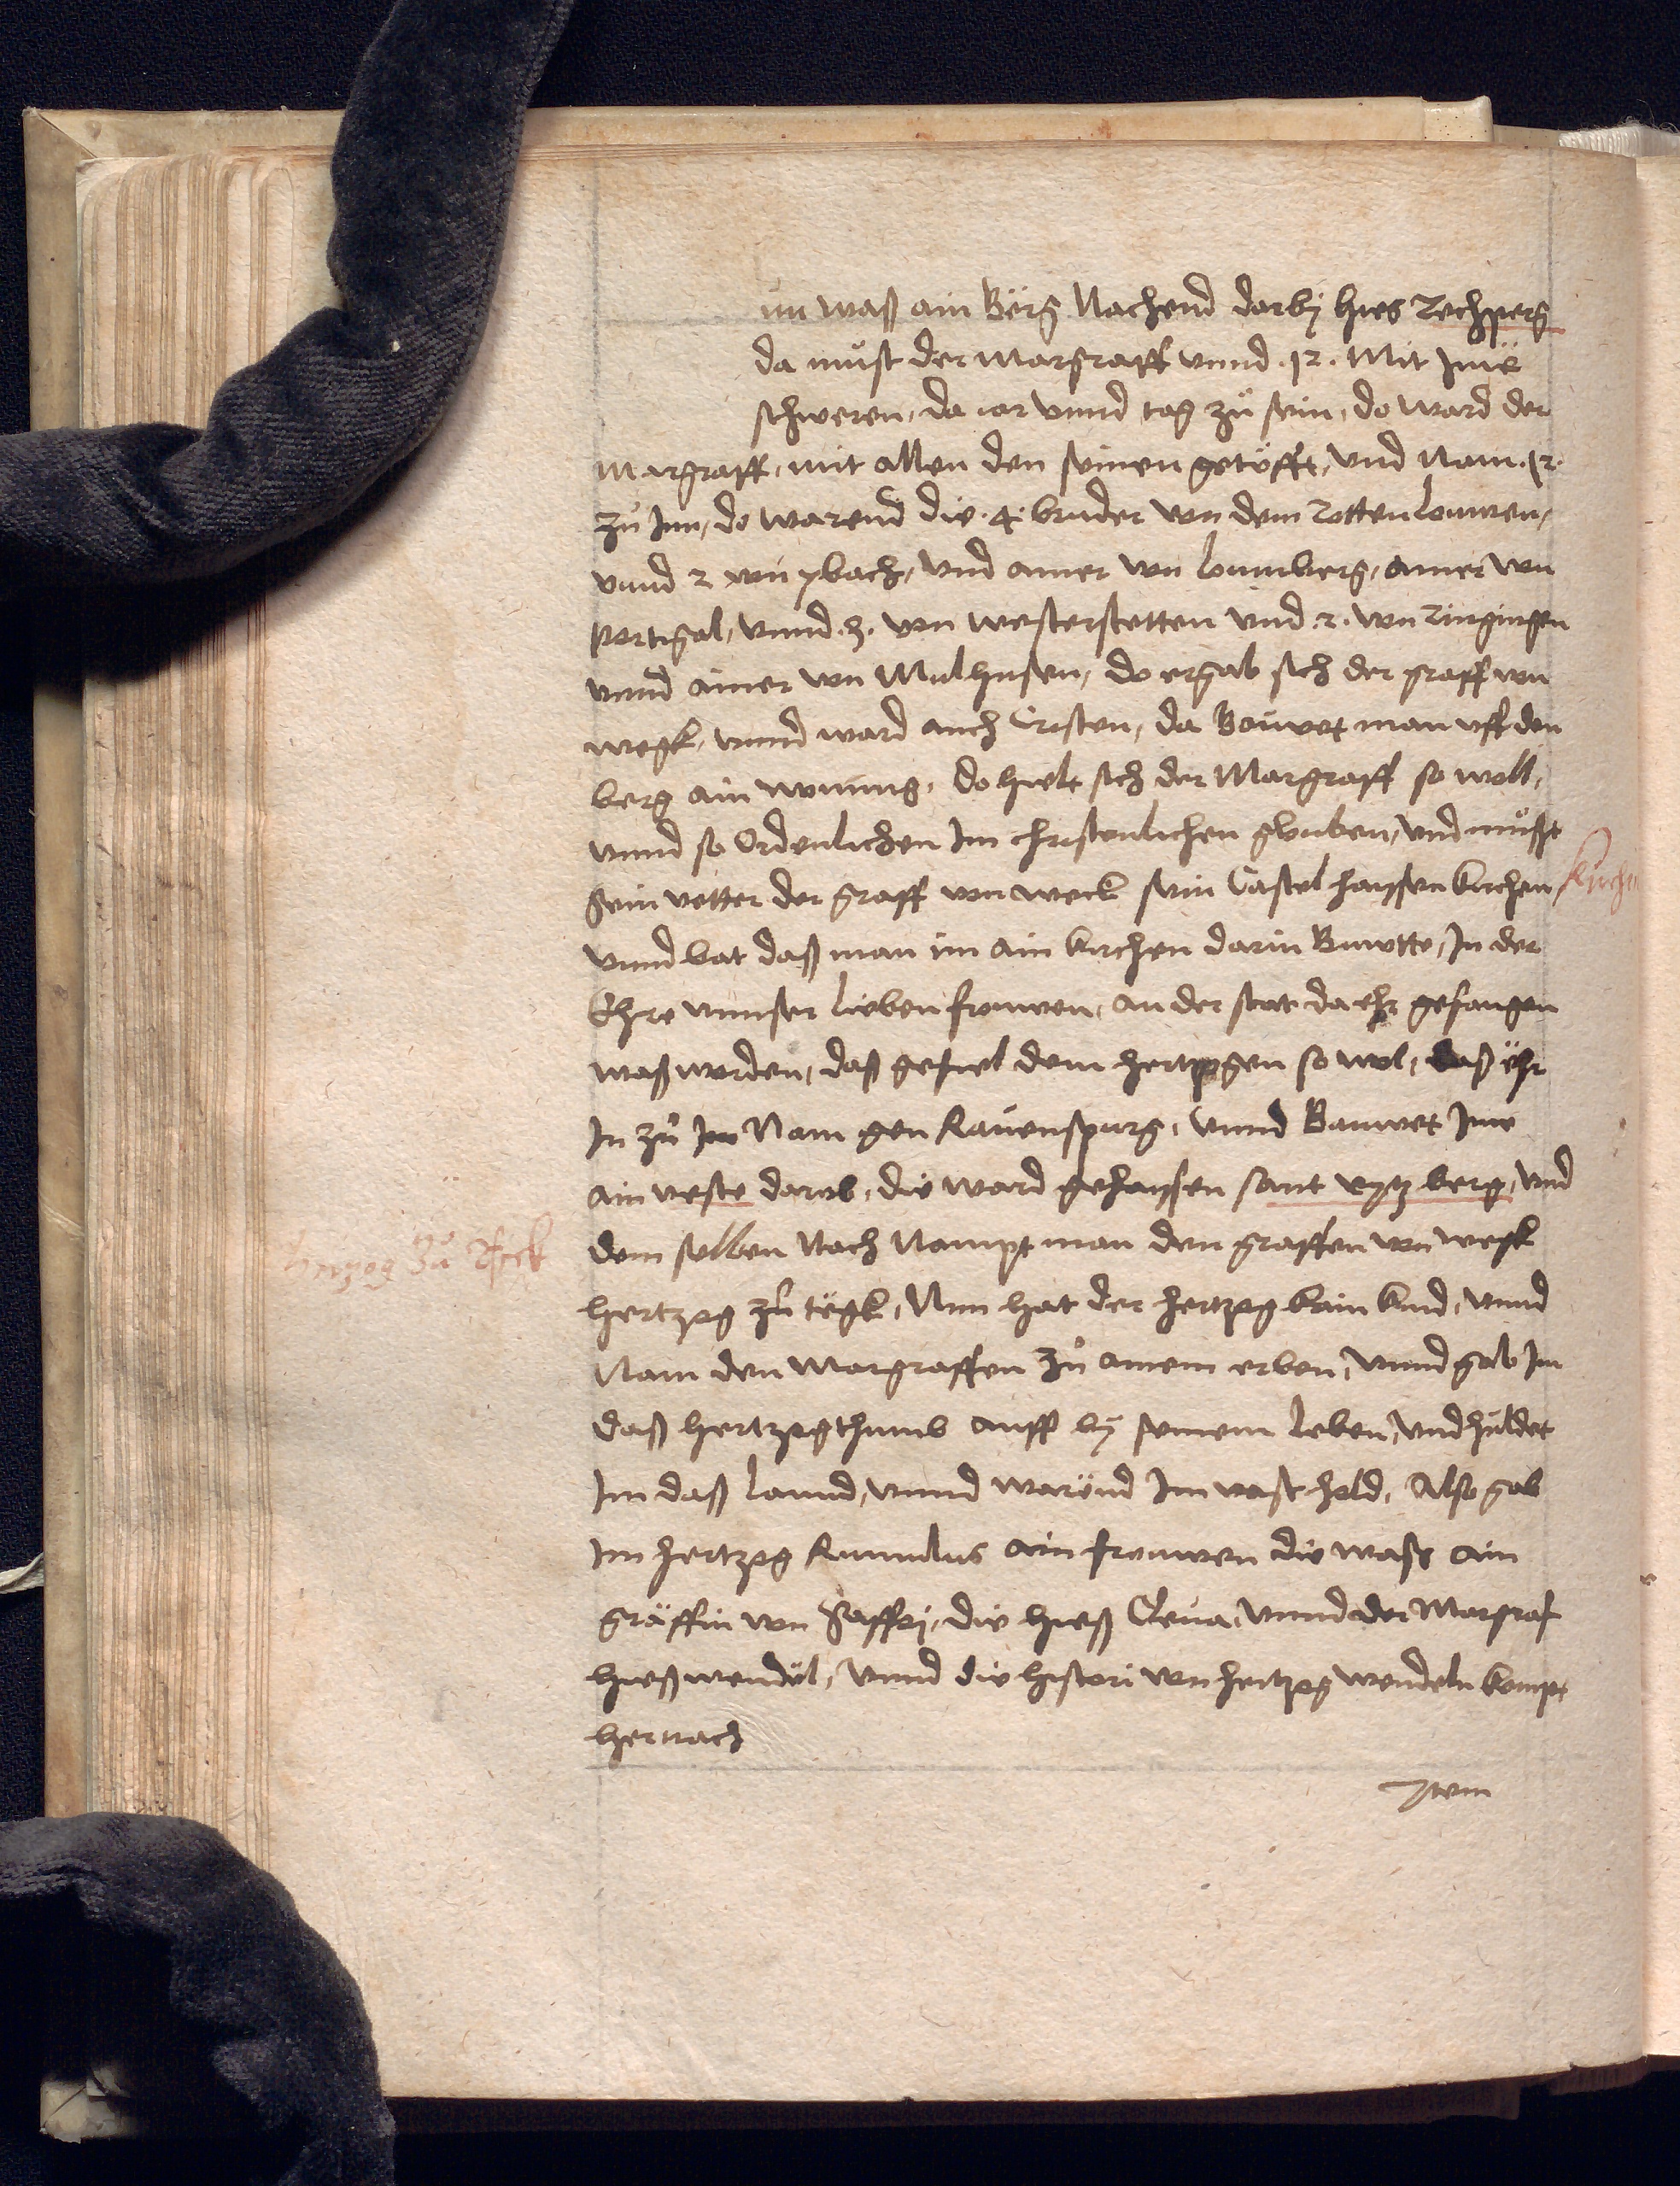 un waß ain Berg Nachend darbÿ hies Rechperg
da můst der Margraff vnnd .12. Mit Jme
schweren, da iar vnnd tag zů sein, do ward der
Margraff, mit allen den seinen getöfft, vnd Nam .12.
zů Jm, do warend die .4. bruder von dem Rotten Louwen,
vnnd 2 von ybach, vnd ainer von Lonnberg, ainer von
Portigal, vnnd .3. von westerstetten vnd .2. von Ringingen
vnnd ainer von Mulhusen, do ergab sich der graff von
wegk, vnnd ward auch Cristen, da Bouwet man vff den
berg ain wonung, do hielt sich der Margraff so woll,
vnnd so Ordenlichen Jm christenlichen glouben, vnd můst
sein vetter der graff von weck sein Castel haissen kirchen
Kirchen
vnnd bat daß man im ain kirchen darin Buwtte, Jn der
Ehre vnnser lieben frouwen, an der stat da ehr gefangen
waß worden, daß gefiel dem hertzogen so wol, daß ehr
Jn zů Jm Nam gen Rauenspurg, vnnd Bauwet Jme
ain veste darab, die ward gehaissen sant vytz berg, vnd
dem selben Nach Nampt man den graffen von wegk
hertzog zů Teck
hertzog zů tegk, Nun hat der hertzog kain kind, vnnd
Nam den Margraffen zů ainem erben, vnnd gab Jm
daß hertzogthumb auff bÿ seinem leben, vnd huldet
Jm daß lannd, vnnd warend Jm vast hold, Also gab
Jm hertzog Rumulus ain frouwen die wass ain
gräffin von Saffoj, die hieß Cleua, vnnd der Margraf
hieß wendel, vnnd die histori von hertzog wendeln kompt
hernach
Item